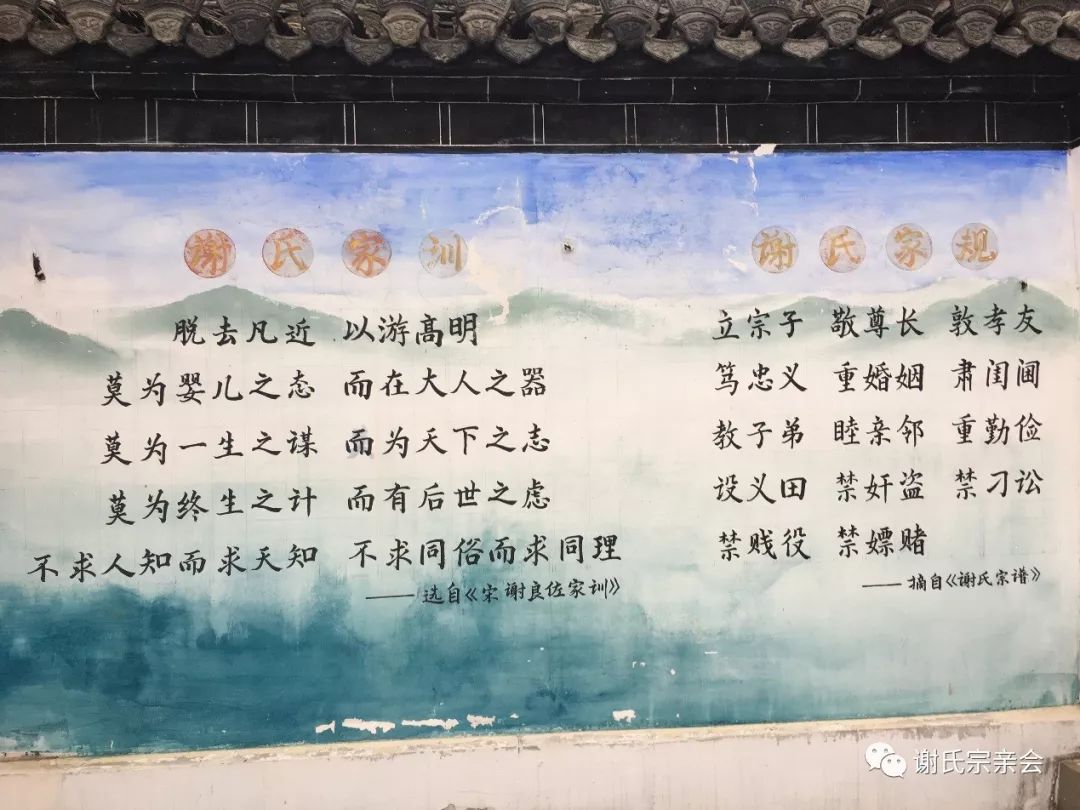 谢氏家训
脱去凡近 以游高明
莫为婴儿之态 而在大人之器
莫为一生之谋 而为天下之志
莫为终生之计 而有后世之虑
不求人知而求天知 不求同俗而求同理
——选自《宋谢良佐家训》
谢氏家规
立宗子 敬尊长 敦孝友
笃忠义 重婚姻 肃闺阃
教子弟 睦亲邻 重勤俭
设义田 禁奸盗 禁刁讼
禁贱役 禁嫖赌
——摘自《谢氏宗谱》
谢氏宗亲会